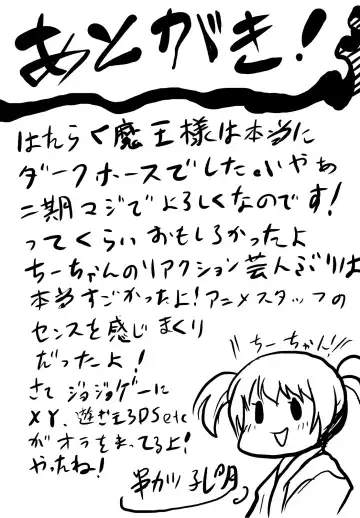 あとがき！
はたらく魔王様は本当に
ダークホースでした。いやぁ
二期マジでよろしくなのです！
ってくらいおもしろかったよ
ちーちゃんのリアクション芸人ぶりは
本当すごかったよ！アニメスタッフの
センスを感じまくり
だったよ！
\\ちーちゃん!//
さて ジョジョゲーに
XY、遊ぎえろDSetc
がオラを待ってるよ！
やったね！
串カツ孔明